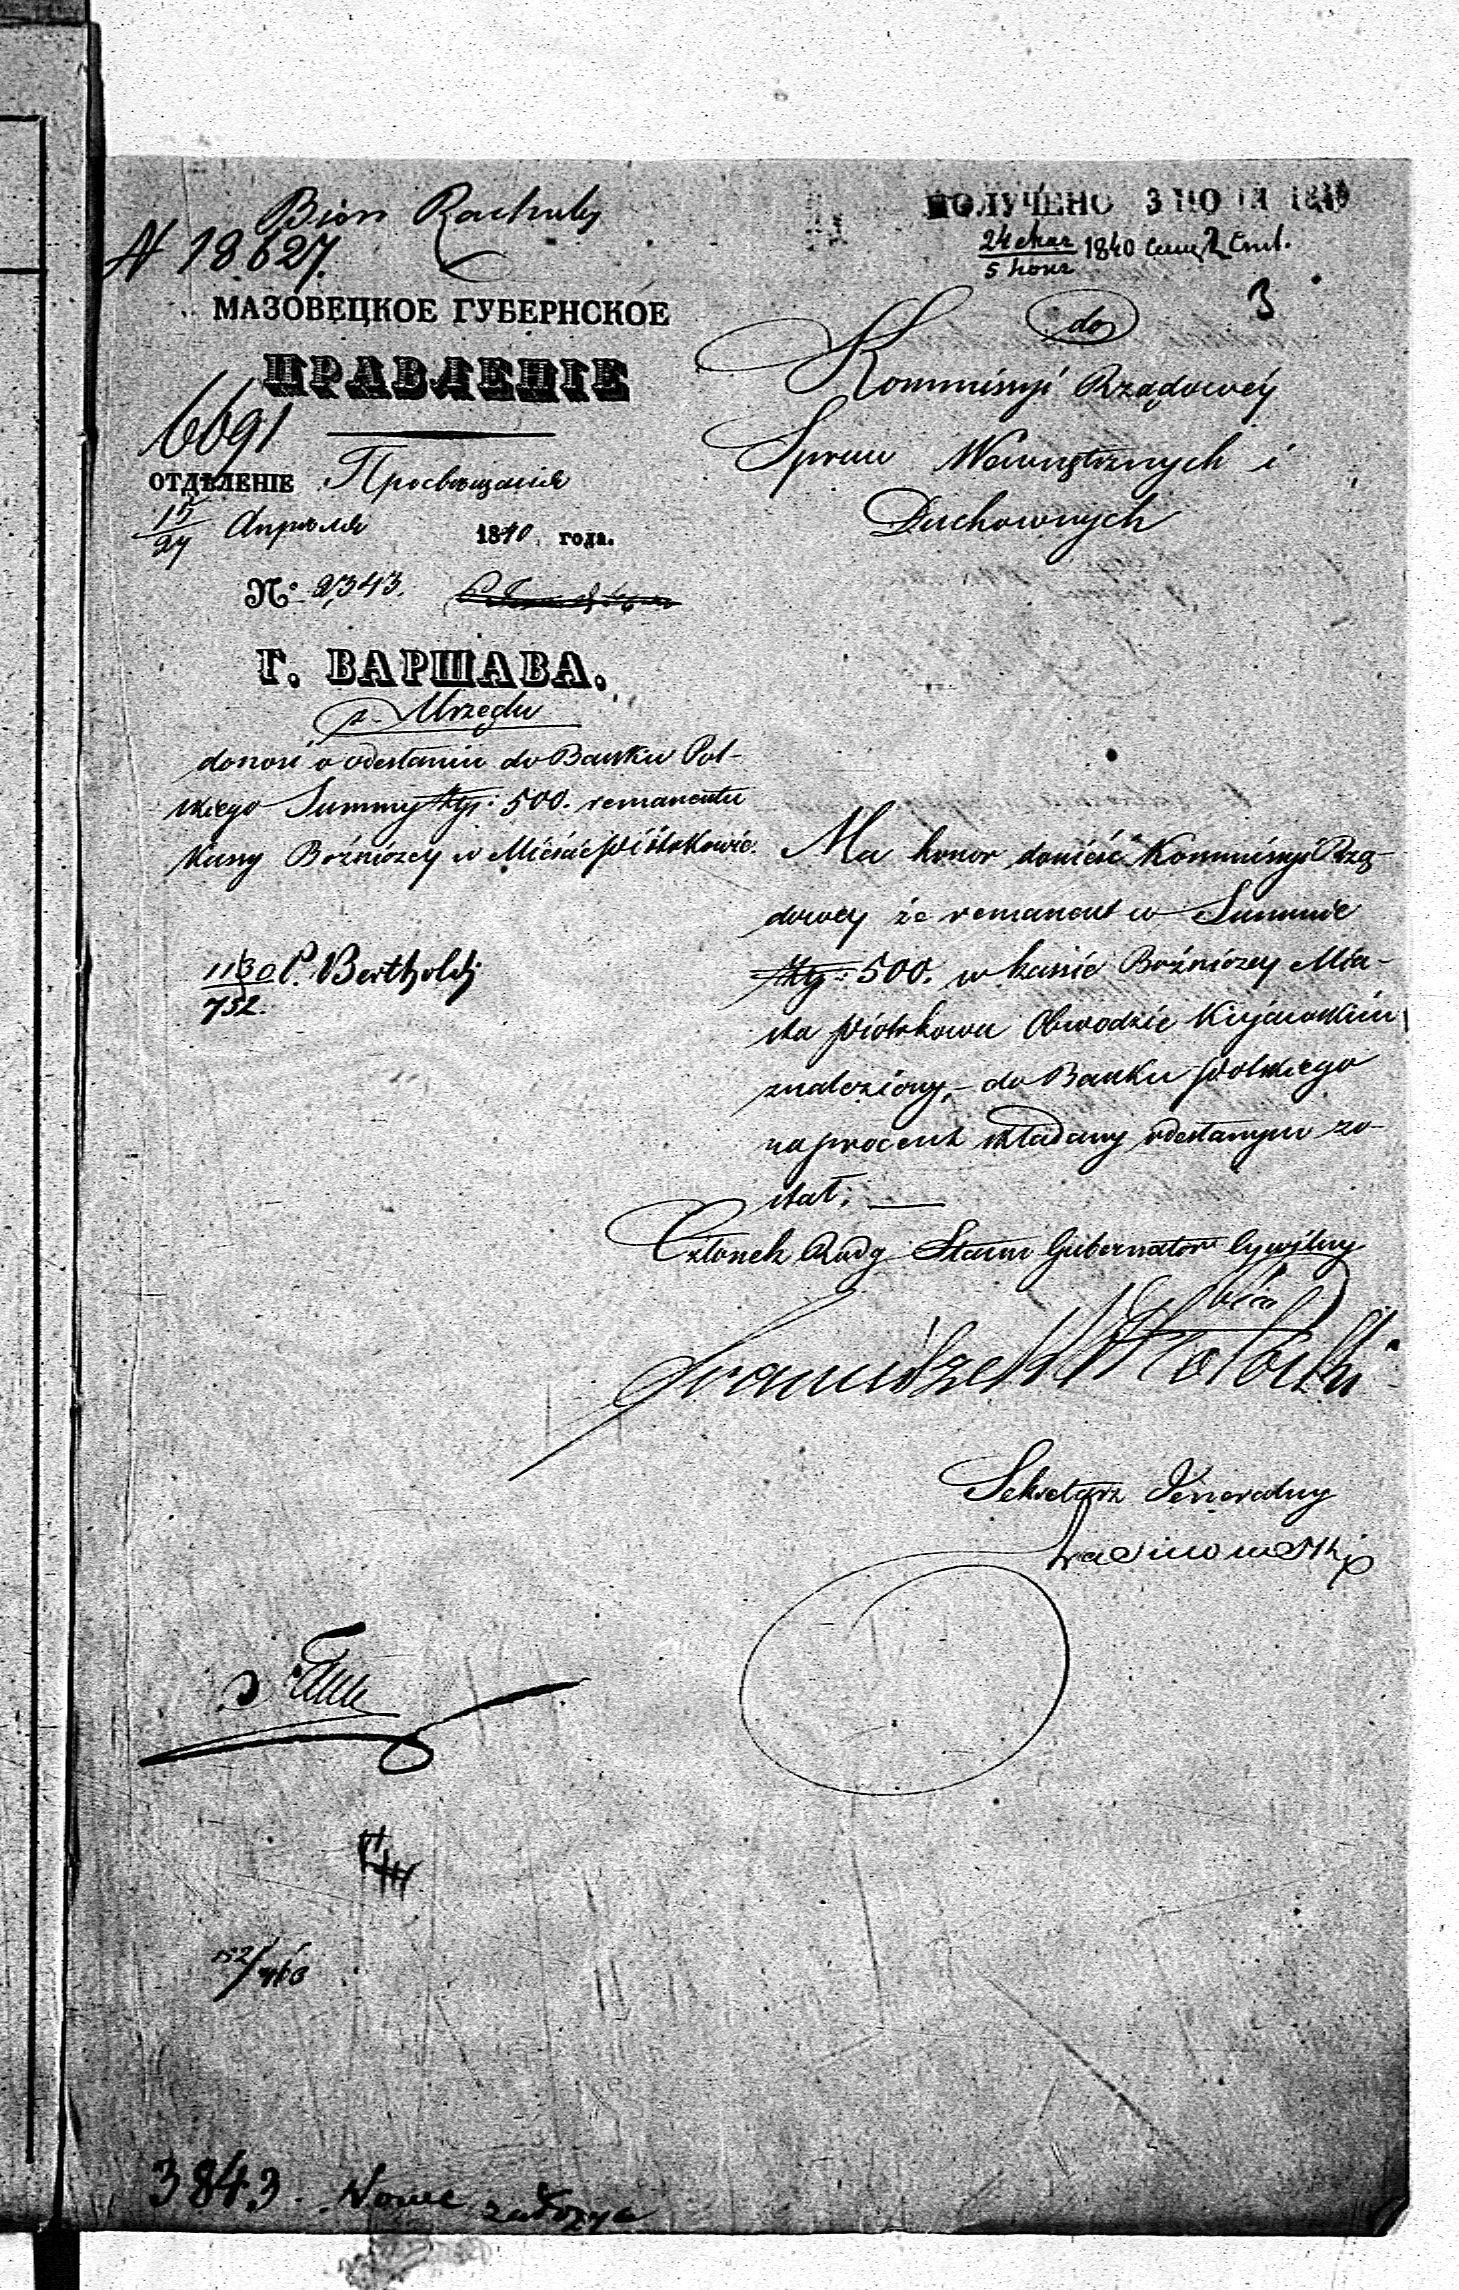 Bióro Rachuby
N 18.627.
МАЗОВЕЦКОЕ ГУБЕРНСКОЕ
ПРАВЛЕНІЕ
6691
ОТДѢЛЕНІЕ Просвѣщенія
15/27 Апрѣля 1840 года.
№ 2343.
Г. ВАРШАВА.
z Urzędu
donosi o odesłaniu do Banku Pol-
skiego Summy złp: 500. remanentu
kassy Bożniczey w Mieście Piotrkowie.
1130 P. Bertholdi
752.
ПОЛУЧЕНО 3 1840
24 мая 1840
5 июня
3
do
Kommissyi Rządowéy
Spraw Wewnętrznych i
Duchownych
Ma honor donieść Kommissyi Rzą-
dowey że remanent w Summie
złp: 500. w kassie Bożniczey Mia-
sta Piotrkowa Obwodzie Kujawskim
znaleziony, – do Banku Polskiego
na procent składany odesłanym zo-
stał; —
Członek Rady Stanu Gubernator Cywilny
Franciszek
Sekretarz Jeneralny
3843. Nowe założyć